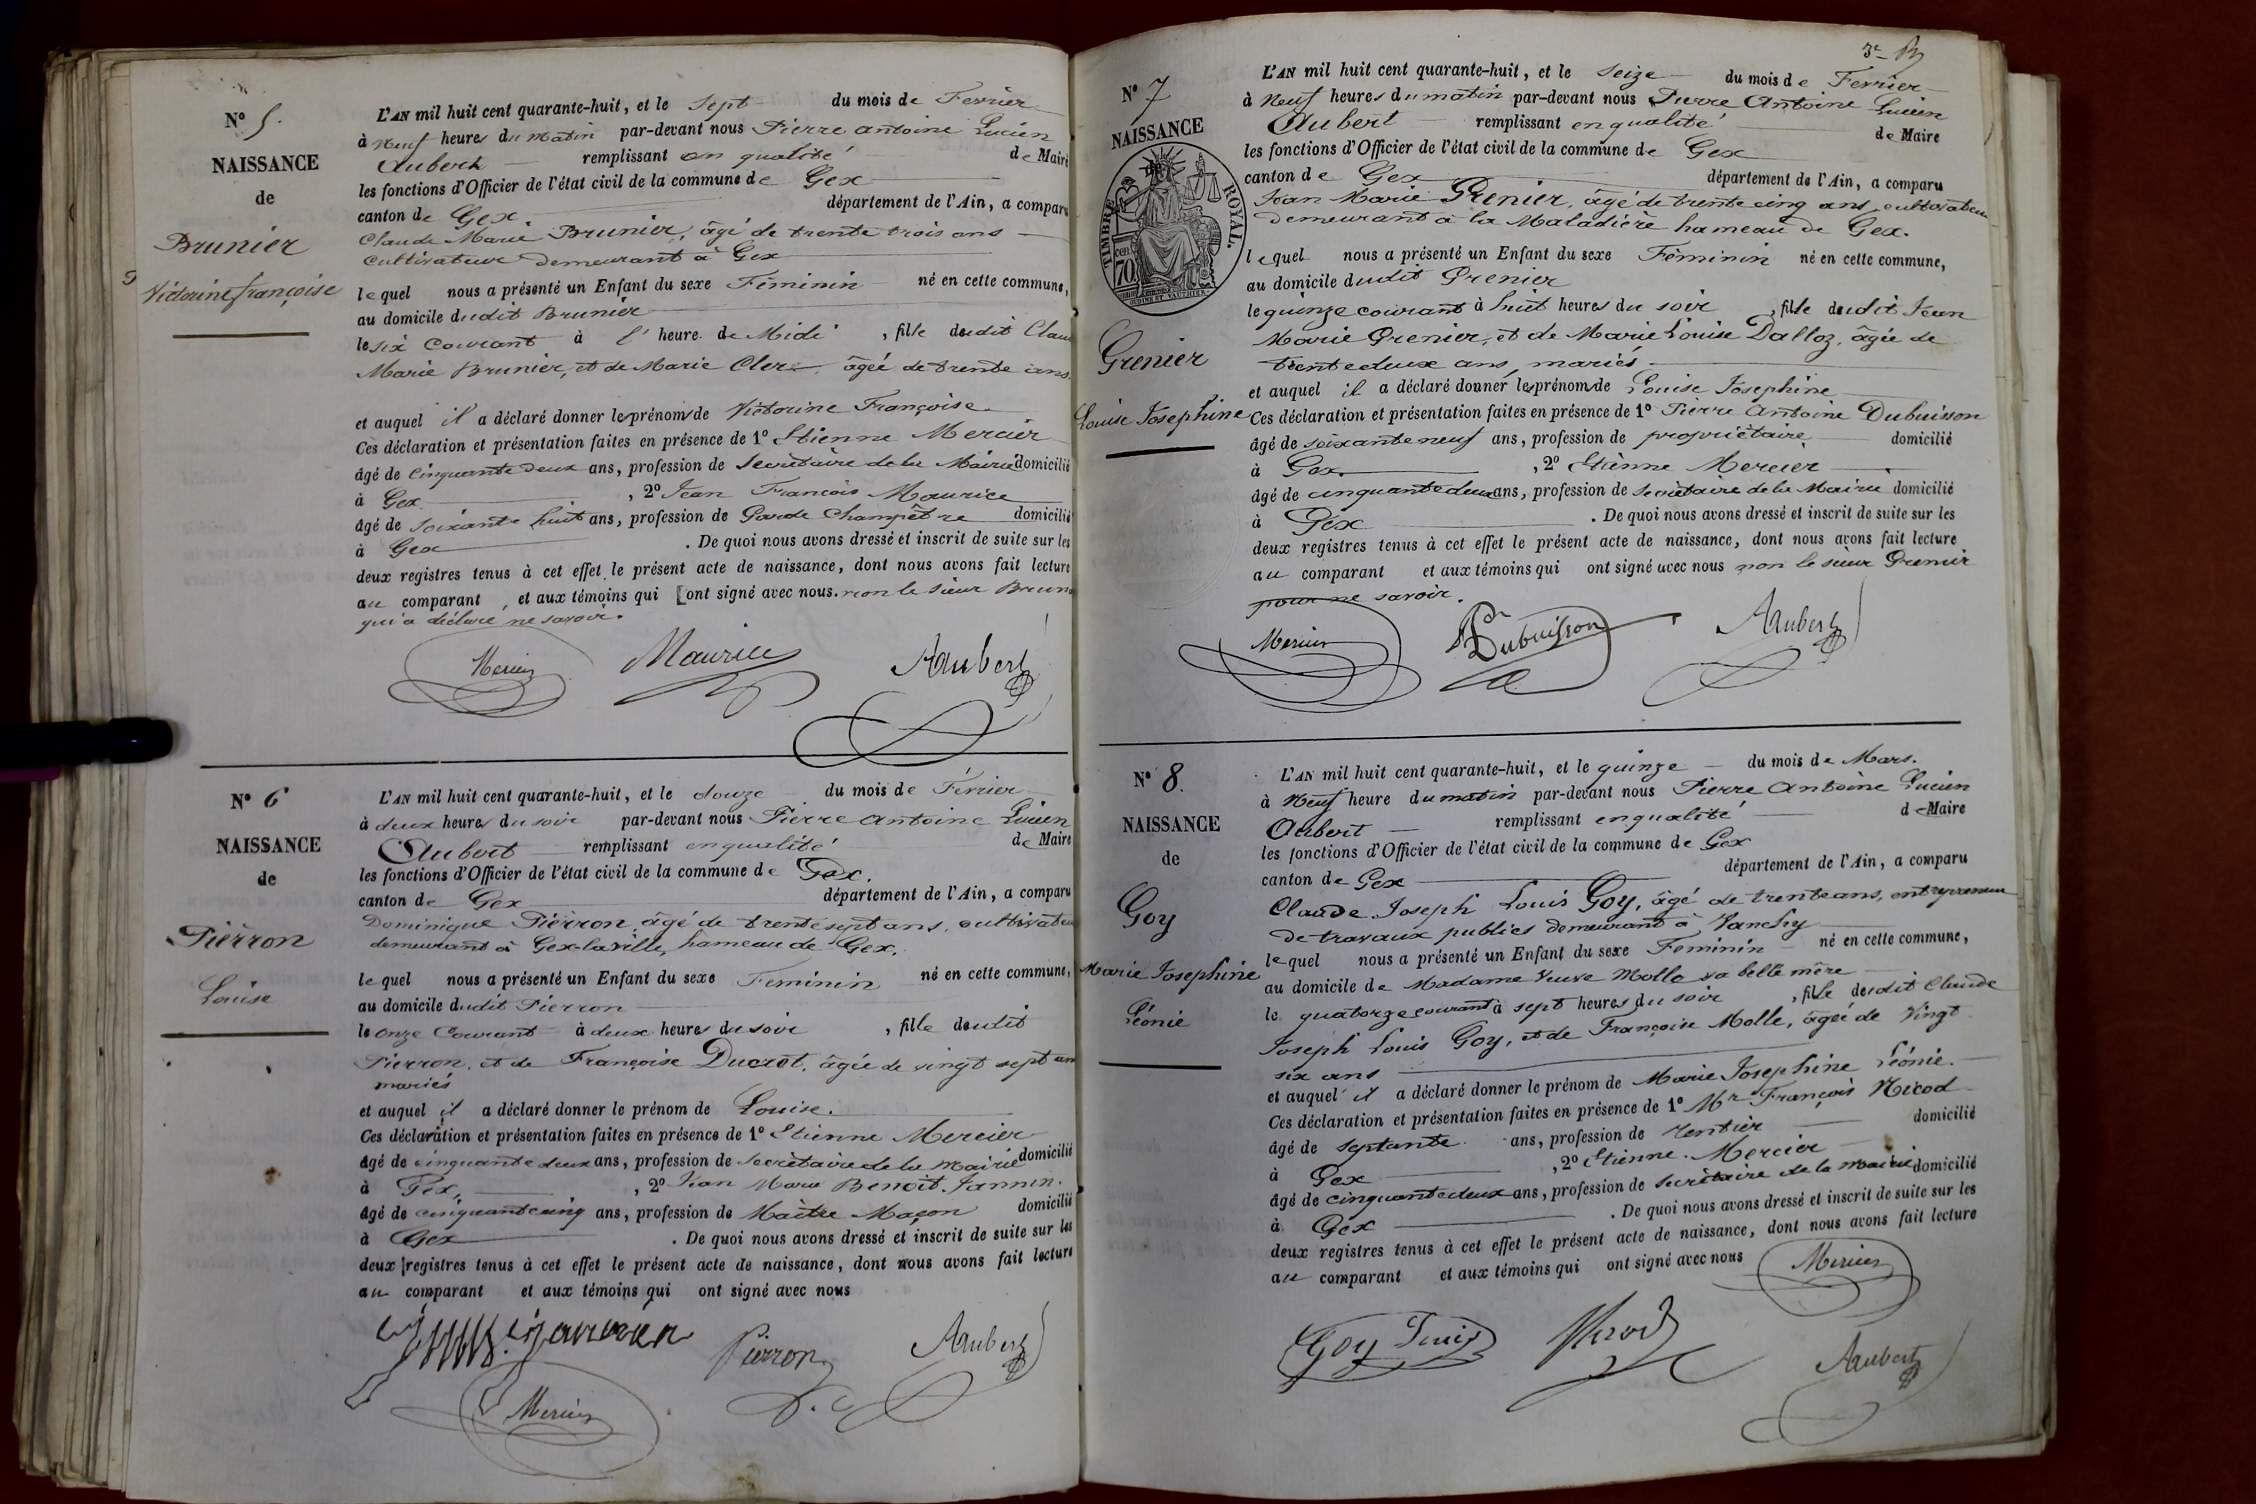 N° 5.
NAISSANCE
de
Brunier
Victorine françoise
L'AN mil huit cent quarante-huit, et le sept du mois de Fevrier
à Neuf heures du matin par-devant nous Pierre antoine Lucien
Aubert remplissant en qualité de Maire
les fonctions d'Officier de l'état civil de la commune de Gex
canton de Gex. département de l'Ain, a comparu
Claude Marie Brunier, âgé de trente trois ans
Cultivateur demeurant à Gex
lequel nous a présenté un Enfant du sexe Féminin né en cette commune,
au domicile dudit Brunier
le six Courant à l' heure de Midi , fille dudit Clau
Marie Brunier, et de Marie Clerc âgée de trente ans.
et auquel il a déclaré donner les prénoms de Victorine Françoise.
Ces déclaration et présentation faites en présence de 1° Etienne Mercier
âgé de Cinquante deux ans, profession de Secrétaire de la Mairie domicilié
à Gex , 2° Jean François Maurice
âgé de soixante huit ans, profession de Garde Champêtre domicilié
à Gex . De quoi nous avons dressé et inscrit de suite sur les
deux registres tenus à cet effet le présent acte de naissance, dont nous avons fait lecture
au comparant , et aux témoins qui ont signé avec nous. non le sieur Brun
qui a déclaré ne savoir.
Mercier Maurice Aubert
N° 6
NAISSANCE
de
Pierron
Louise
L'AN mil huit cent quarante-huit, et le douze du mois de Février
à deux heures du soir par-devant nous Pierre antoine Lucien
Aubert remplissant en qualité de Maire
les fonctions d'Officier de l'état civil de la commune de Gex.
canton de Gex département de l'Ain, a comparu
Dominique Pierron, âgé de trente sept ans, cultivateur
demeurant à Gex-la-ville, hameau de Gex.
lequel nous a présenté un Enfant du sexe Feminin né en cette commune,
au domicile dudit Pierron
le onze Courant à deux heures du soir , fille dudit
Pierron, et de Françoise Ducrot, âgée de vingt sept an
mariés
et auquel il a déclaré donner le prénom de Louise.
Ces déclaration et présentation faites en présence de 1° Etienne Mercier
âgé de cinquante deux ans, profession de secrétaire de la mairie domicilié
à Gex, , 2° Jean Marie Benoit Jannin.
âgé de cinquante cinq ans, profession de Maître Maçon domicilié
à Gex . De quoi nous avons dressé et inscrit de suite sur les
deux registres tenus à cet effet le présent acte de naissance, dont nous avons fait lecture
au comparant et aux témoins qui ont signé avec nous
Pierron Aubert
Mercier
N° 7
NAISSANCE
de
TIMBRE ROYAL.
cen
70
Grenier
Louise Josephine
L'AN mil huit cent quarante-huit, et le seize du mois de Fevrier
à Neuf heures du matin par-devant nous Pierre Antoine Lucien
Aubert remplissant en qualité de Maire
les fonctions d'Officier de l'état civil de la commune de Gex
canton de Gex département de l'Ain, a comparu
Jean Marie Grenier, âgé de trente cinq ans, cultivateur
demeurant à la Maladière hameau de Gex.
lequel nous a présenté un Enfant du sexe Féminin né en cette commune,
au domicile dudit Grenier
le quinze courant à huit heures du soir , fille dudit Jean
Marie Grenier, et de Marie Louise Dalloz, âgée de
trente deux ans, mariés
et auquel il a déclaré donner les prénoms de Louise Josephine
Ces déclaration et présentation faites en présence de 1° Pierre Antoine Dubuisson
âgé de soixante neuf ans, profession de propriètaire domicilié
à Gex. , 2° Etienne Mercier
âgé de cinquante deux ans, profession de secrétaire de la Mairie domicilié
à Gex . De quoi nous avons dressé et inscrit de suite sur les
deux registres tenus à cet effet le présent acte de naissance, dont nous avons fait lecture
au comparant et aux témoins qui ont signé avec nous non le sieur Grenier
pour ne savoir.
Mercier Dubuisson Aubert
N° 8.
NAISSANCE
de
Goy
Marie Josephine
Léonie
L'AN mil huit cent quarante-huit, et le quinze du mois de Mars.
à Neuf heure du matin par-devant nous Pierre Antoine Lucien
Aubert remplissant en qualité de Maire
les fonctions d'Officier de l'état civil de la commune de Gex
canton de Gex département de l'Ain, a comparu
Claude Joseph Louis Goy, âgé de trente ans, entrepreneur
de travaux publics demeurant à Vanchy
lequel nous a présenté un Enfant du sexe Feminin né en cette commune,
au domicile de Madame Veuve Molle sa belle mère
le quatorze courant à sept heures du soir , fille dudit Claude
Joseph Louis Goy, et de Françoise Molle, âgée de Vingt
six ans
et auquel il a déclaré donner le prénom de Marie Josephine Léonie.
Ces déclaration et présentation faites en présence de 1° Mr François Nicod
âgé de septante ans, profession de rentier domicilié
à Gex , 2° Etienne Mercier
âgé de cinquante deux ans, profession de secrétaire de la mairie domicilié
à Gex . De quoi nous avons dressé et inscrit de suite sur les
deux registres tenus à cet effet le présent acte de naissance, dont nous avons fait lecture
au comparant et aux témoins qui ont signé avec nous Mercier
Goy Louis Nicod Aubert